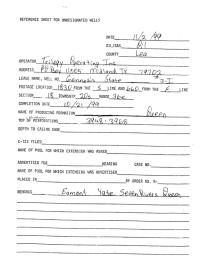 REFERENCE SHEET FOR UNDESIGNATED WELLS
DATE 11/2/99
OIL/GAS
COUNTY Lea
OPERATOR Trilogy Operating Inc
ADDRESS PO Box Midland TX 79702
LEASE NAME, WELL NO. State
FOOTAGE LOCATION 1830 FROM THE S LINE AND 660 FROM THE E LINE
SECTION 18 TOWNSHIP 20s RANGE 36e
COMPLETION DATE 10/21/99
NAME OF PRODUCING FORMATION Queen
TOP OF PERFORATIONS 3948-3968
DEPTH TO CASING SHOE
C-123 FILED
NAME OF POOL FOR WHICH EXTENSION WAS ASKED
ADVERTISED FOR HEARING CASE NO.
NAME OF POOL FOR WHICH EXTENSION WAS ADVERTISED
PLACED IN BY ORDER NO. R-
REMARKS Eumont Yates Seven Rivers Queen